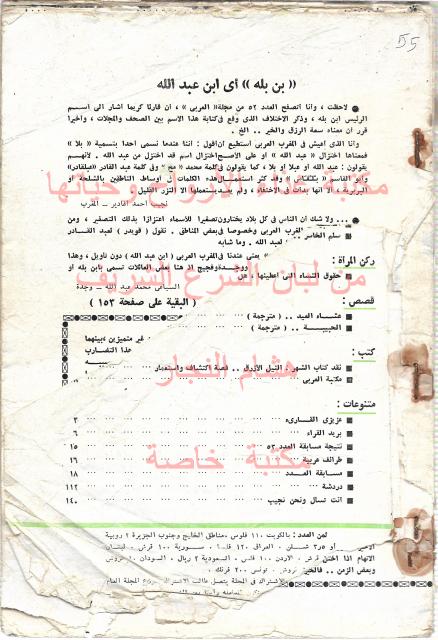 55
« بن بله » أى ابن عبد الله
● لاحظت ، وانا اتصفح العدد ٥٢ من مجلة « العربى » ، ان قارئا كريما اشار الى اسم
الرئيس ابن بله ، وذكر الاختلاف الذى وقع فى كتابة هذا الاسم بين الصحف والمجلات ، واخيرا
قرر ان معناه سعة الرزق والخير .. الخ .
وانا الذى اعيش فى المغرب العربى استطيع ان اقول : اننا عندما نسمى احدا بتسمية « بلا »
فمعناها اختزال « عبد الله » او على الاصح اختزال اسم قد اختزل من عبد الله . لانهم
يقولون : عبد الله او عبلا او بلا ، كما يقولون فى كلمة محمد « مح » وفى كلمة عبد القادر «
وابو القاسم » وقد كثر استعمال هذه الكلمات فى اوساط الناطقين بالشلحة او
البربرية ، الا انها بدأت فى الاختفاء ، ولم يعد يستعملها الا النزر القليل .
نجيب احمد اقادير ــ المغرب
● ... ولا شك ان الناس فى كل بلاد يختارون تصغيرا للأسماء اعتزازا بذلك التصغير ، ومن
المغرب العربى وخصوصا فى بعض المناطق . تقول ( قويدر ) لعبد القادر
سلم الخاسر
لعبد الله . وما شابه
ركن المرأة :
بعنى عندنا فى المغرب العربى ( ابن عبد الله ) دون تأويل ، وهذا
العائلات تسمى بابن بله او
حقوق النساء التى اعطيتها ، هل
محمد عبد الله ــ وجدة
قصص :
( البقية على صفحة ١٥٣ )
عشاء العيد .. ( مترجمة )
الحبيسة .. ( مترجمة )
غير متميزين بينهما
هذا التضارب
كتب :
نقد كتاب الشهر : النيل الأزرق .. قصة اكتشاف واستعمار
مكتبة العربى
متنوعات :
عزيزى القارىء ٣
بريد القراء ٦
نتيجة مسابقة العدد ٥٣ ١٥
طرائف عربية ١٦
مسابقة العدد ١٨
دردشة ١١٢
انت تسأل ونحن نجيب ١٤٠
ثمن العدد : بالكويت ١١٠ فلوس ، مناطق الخليج وجنوب الجزيرة ٢ روبية
العراق ١٢٠ فلسا ، سورية ١٠٠ قرش ، لبنان
قرش ، الاردن ١٠٠ فلس ، السعودية ٢ ريال ، السودان ١٠ قروش
تونس ٢٠٠ فرنك .
الاشتراك فى المجلة يتصل طالب الاشتراك
من لبنان الشرع الشريف
هشام النجار
مكتبة خاصة